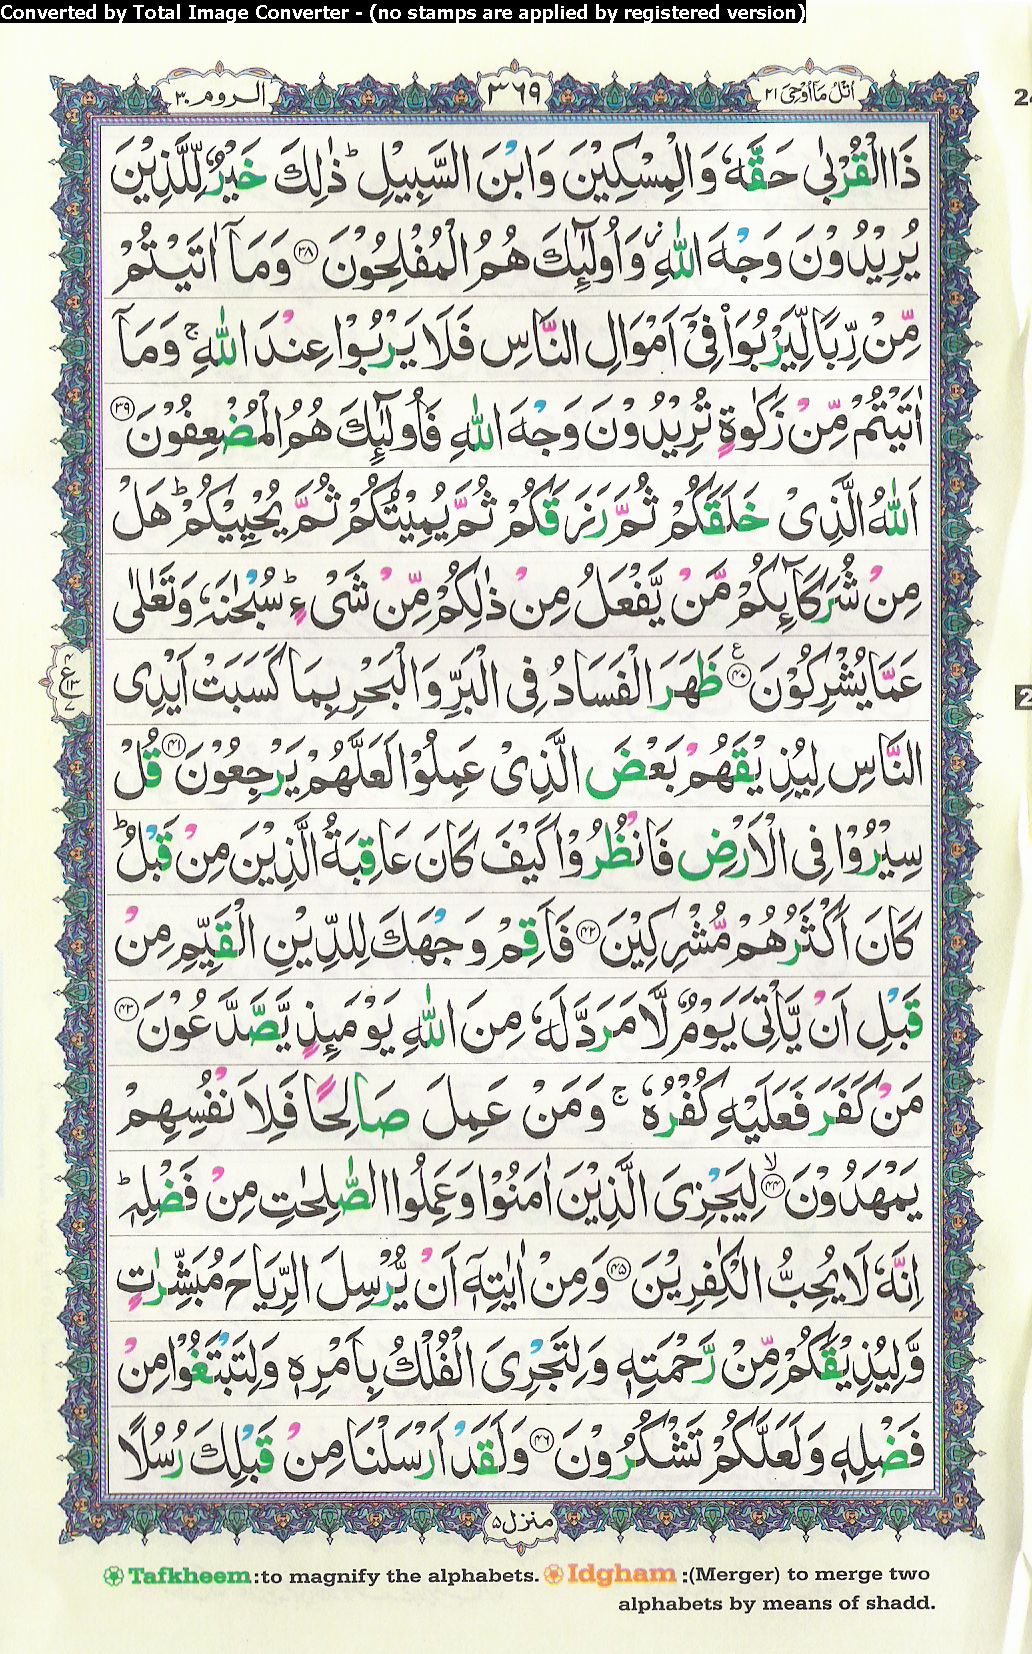 Converted by Total Image Converter - (no stamps are applied by registered version)
اتل ما اوحی ۲۱
۳۶۹
الروم ۳۰
ذَا الْقُرْبٰی حَقَّهٗ وَ الْمِسْكِیْنَ وَ ابْنَ السَّبِیْلِ ؕ ذٰلِكَ خَیْرٌ لِّلَّذِیْنَ
یُرِیْدُوْنَ وَجْهَ اللّٰهِ ؗ وَ اُولٰٓئِكَ هُمُ الْمُفْلِحُوْنَ ﴿۳۸﴾ وَ مَاۤ اٰتَیْتُمْ
مِّنْ رِّبًا لِّیَرْبُوَا۠ فِیْۤ اَمْوَالِ النَّاسِ فَلَا یَرْبُوْا عِنْدَ اللّٰهِ ۚ وَ مَاۤ
اٰتَیْتُمْ مِّنْ زَكٰوةٍ تُرِیْدُوْنَ وَجْهَ اللّٰهِ فَاُولٰٓئِكَ هُمُ الْمُضْعِفُوْنَ ﴿۳۹﴾
اَللّٰهُ الَّذِیْ خَلَقَكُمْ ثُمَّ رَزَقَكُمْ ثُمَّ یُمِیْتُكُمْ ثُمَّ یُحْیِیْكُمْ ؕ هَلْ
مِنْ شُرَكَآئِكُمْ مَّنْ یَّفْعَلُ مِنْ ذٰلِكُمْ مِّنْ شَیْءٍ ؕ سُبْحٰنَهٗ وَ تَعٰلٰی
عَمَّا یُشْرِكُوْنَ ﴿۴۰﴾ ع ظَهَرَ الْفَسَادُ فِی الْبَرِّ وَ الْبَحْرِ بِمَا كَسَبَتْ اَیْدِی
۴ ع ۱۳ ۷
النَّاسِ لِیُذِیْقَهُمْ بَعْضَ الَّذِیْ عَمِلُوْا لَعَلَّهُمْ یَرْجِعُوْنَ ﴿۴۱﴾ قُلْ
سِیْرُوْا فِی الْاَرْضِ فَانْظُرُوْا كَیْفَ كَانَ عَاقِبَةُ الَّذِیْنَ مِنْ قَبْلُ ؕ
كَانَ اَكْثَرُهُمْ مُّشْرِكِیْنَ ﴿۴۲﴾ فَاَقِمْ وَجْهَكَ لِلدِّیْنِ الْقَیِّمِ مِنْ
قَبْلِ اَنْ یَّاْتِیَ یَوْمٌ لَّا مَرَدَّ لَهٗ مِنَ اللّٰهِ یَوْمَئِذٍ یَّصَّدَّعُوْنَ ﴿۴۳﴾
مَنْ كَفَرَ فَعَلَیْهِ كُفْرُهٗ ۚ وَ مَنْ عَمِلَ صَالِحًا فَلِاَنْفُسِهِمْ
یَمْهَدُوْنَ ﴿۴۴﴾ ۙ لِیَجْزِیَ الَّذِیْنَ اٰمَنُوْا وَ عَمِلُوا الصّٰلِحٰتِ مِنْ فَضْلِهٖ ؕ
اِنَّهٗ لَا یُحِبُّ الْكٰفِرِیْنَ ﴿۴۵﴾ وَ مِنْ اٰیٰتِهٖۤ اَنْ یُّرْسِلَ الرِّیَاحَ مُبَشِّرٰتٍ
وَّ لِیُذِیْقَكُمْ مِّنْ رَّحْمَتِهٖ وَ لِتَجْرِیَ الْفُلْكُ بِاَمْرِهٖ وَ لِتَبْتَغُوْا مِنْ
فَضْلِهٖ وَ لَعَلَّكُمْ تَشْكُرُوْنَ ﴿۴۶﴾ وَ لَقَدْ اَرْسَلْنَا مِنْ قَبْلِكَ رُسُلًا
منزل ۵
Tafkheem:to magnify the alphabets. Idgham :(Merger) to merge two
alphabets by means of shadd.